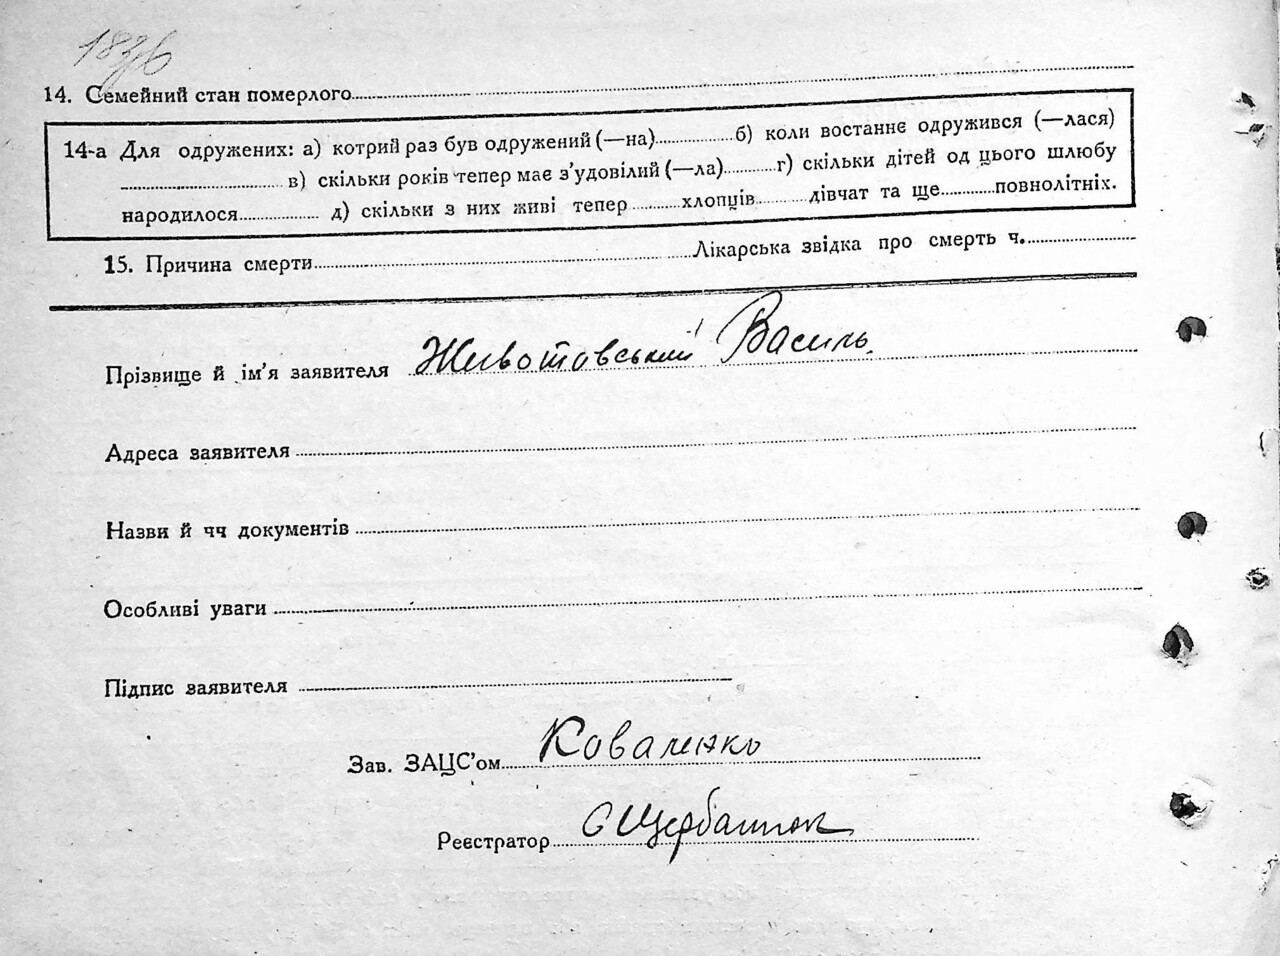 183
14. Семейний стан померлого
14-а Для одружених: а) котрий раз був одружений (—на) б) коли востаннє одружився (—лася)
в) скільки років тепер має з'удовілий (—ла) г) скільки дітей од цього шлюбу
народилося д) скільки з них живі тепер хлопців дівчат та ще повнолітніх.
15. Причина смерти Лікарська звідка про смерть ч.
Прізвище й ім'я заявителя Животовський Василь
Адреса заявителя
Назви й чч документів
Особливі уваги
Підпис заявителя
Зав. ЗАЦС'ом Коваленко
Реєстратор